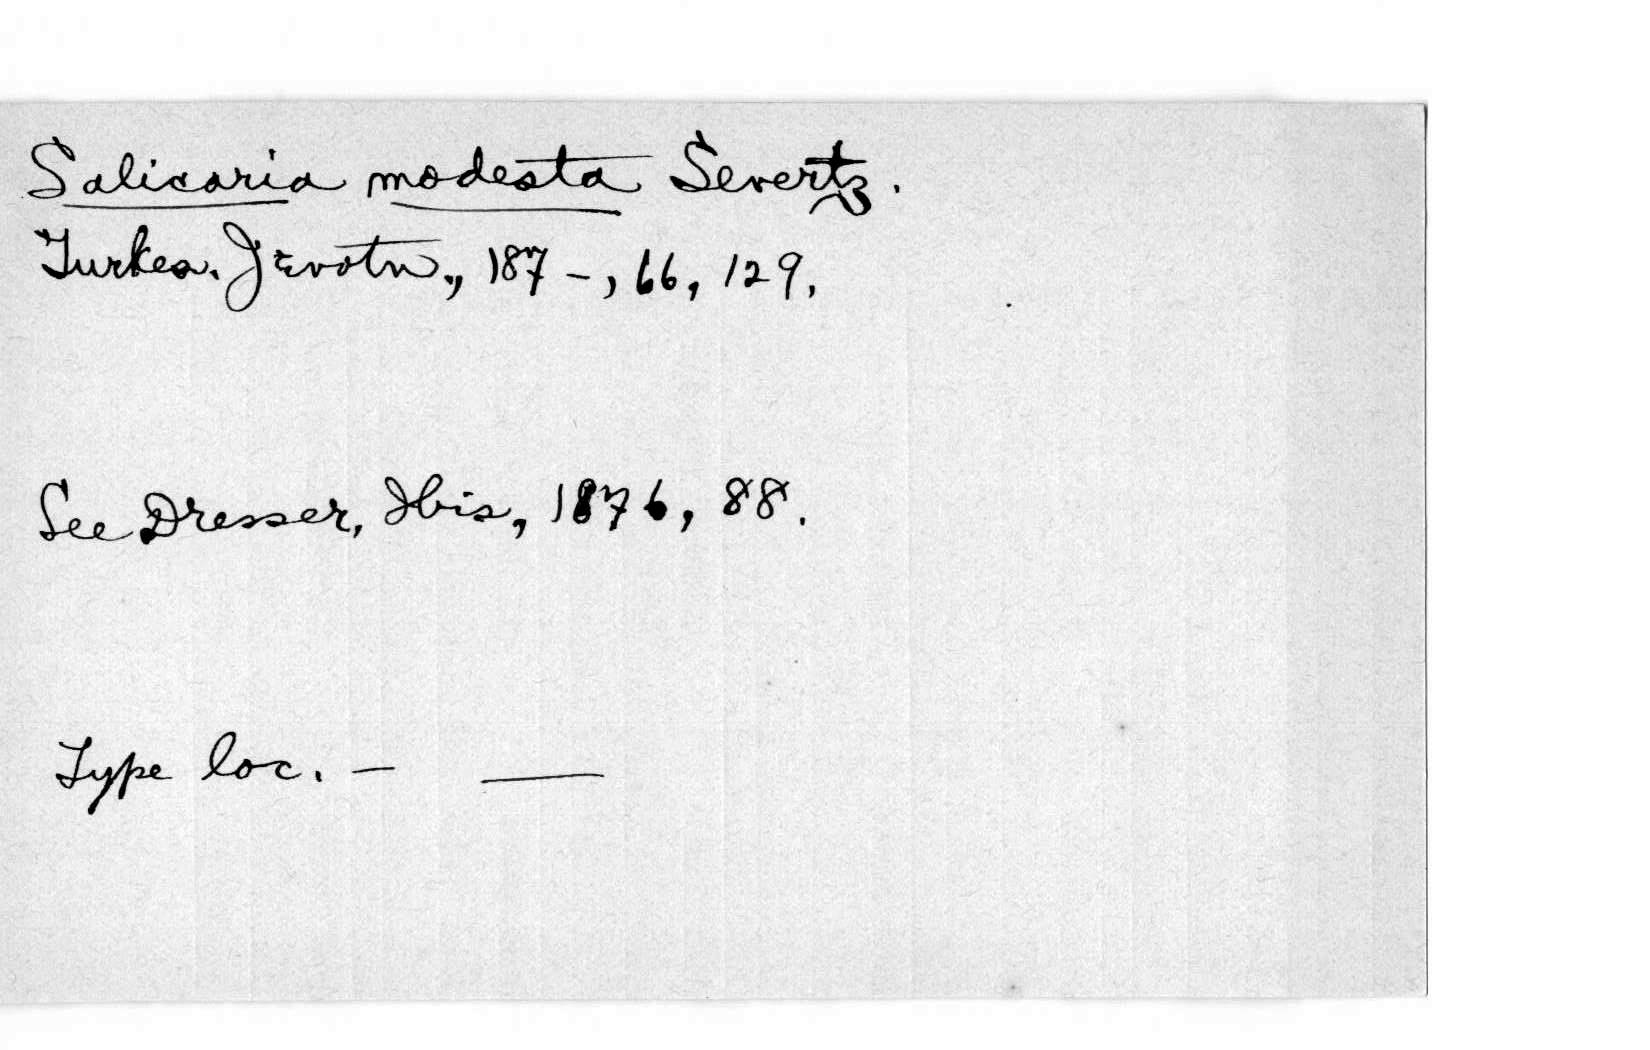 Salicaria modesta Severtz.
Turkes. Jevotn., 187-, 66, 129.
See Dresser, Ibis, 1876, 88.
Type loc. — ——